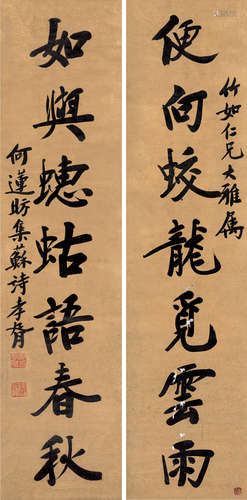 竹如仁兄大雅属
便向蛟龍覓雲雨
如與蟪蛄語春秋
何蓮昉集蘇詩孝胥